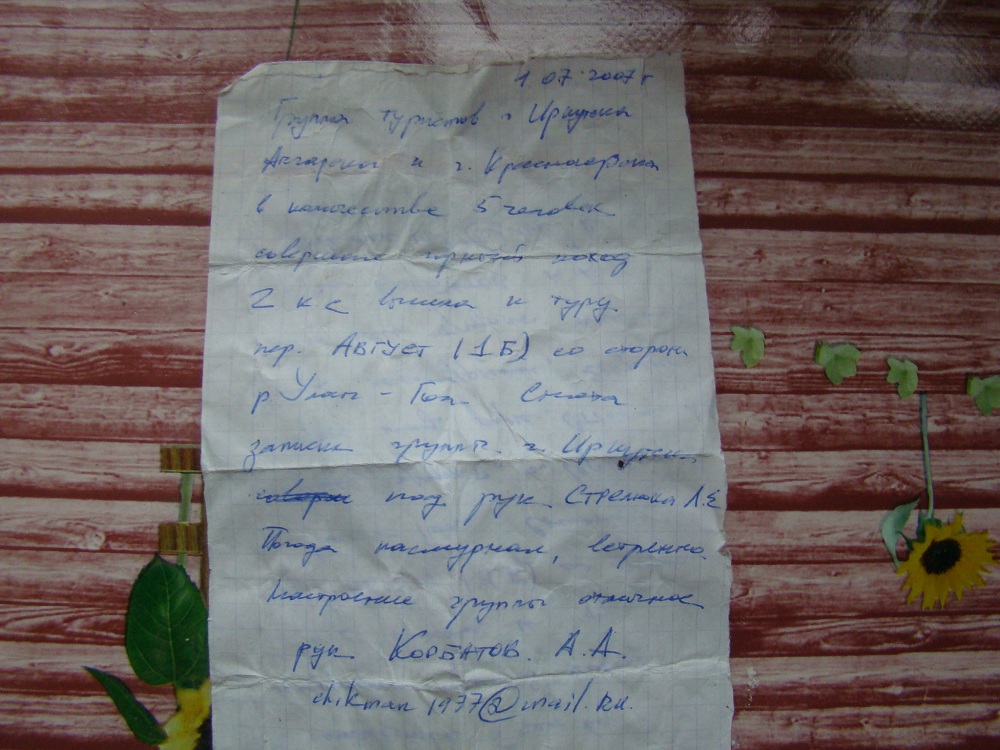 1 07 2007 г
Группа туристов г Иркутска
Ангарска и г. Красноярска
в количестве 5 человек
совершая горный поход
2 к с вышла к туру.
пер. АВГУСТ (1Б) со стороны
р Улан - Гол. Снята
записка группы г. Иркутска
под рук. Стрелюка Л.Е
Погода пасмурная, ветренно.
Настроение группы отличное
рук КОРБАТОВ. А.А.
chikman1977@mail.Ru.